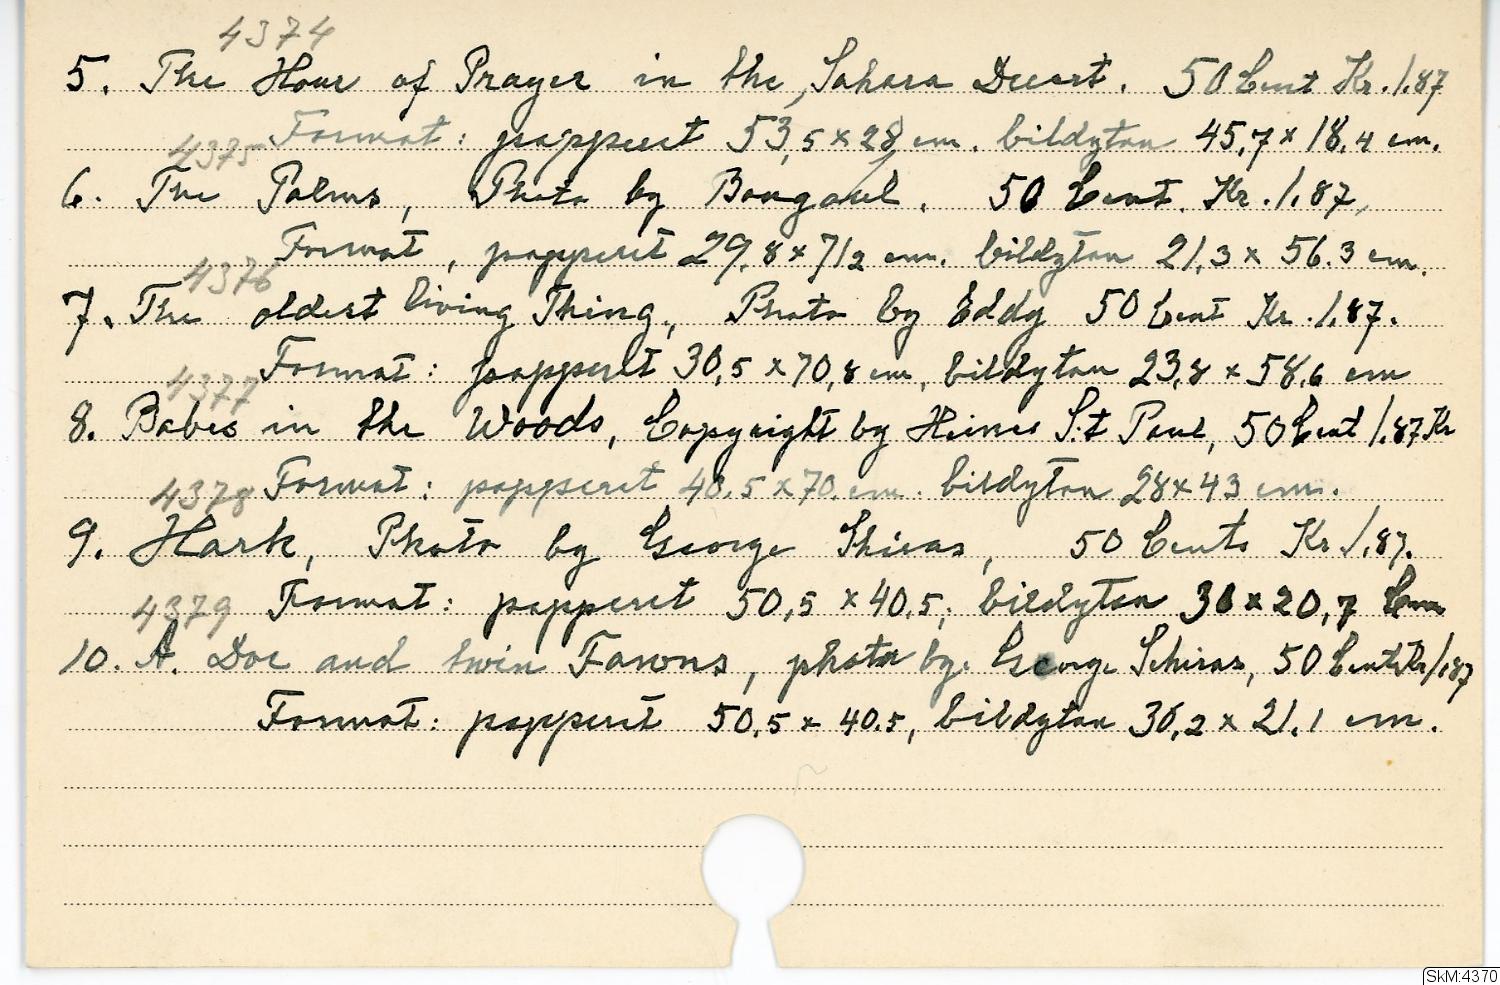 4374
5. The Hour of Prayer in the Sahara Desert. 50 Cent Kr. 1.87
4375 Format: papperet 53,5 x 28 cm. bildytan 45,7 x 18,4 cm.
6. The Palms, Photo by 50 Cent. Kr. 1.87,
Format, papperet 29,8 x 71,2 cm. bildytan 21,3 x 56.3 cm.
4376
7. The oldest living Thing., Photo by Eddy 50 Cent Kr. 1.87.
4377 Format: papperet 30,5 x 70,8 cm, bildytan 23,8 x 58,6 cm
8. Babes in the Woods, Copyright by Heines S:t Paul, 50 Cent 1.87 Kr
4378 Format: papperet 40,5 x 70. cm. bildytan 28 x 43 cm.
9. Hark, Photo by George Shiras, 50 Cents Kr 1.87.
4379 Format: papperet 50,5 x 40.5, bildytan 30 x 20,7 Cm
10. A. Doe and twin Fawns, photo by. George Schiras, 50 Cents Kr 1.87
Format: papperet 50,5 x 40.5, bildytan 30,2 x 21,1 cm.
SkM:4370